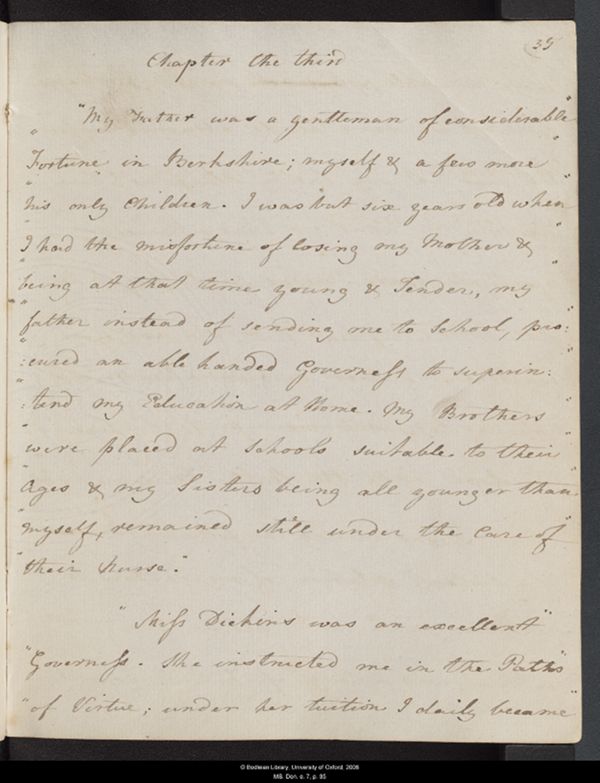 35
Chapter the third
"My Father was a gentleman of considerable"
"Fortune in Berkshire; myself & a few more"
"his only Children. I was but six years old when"
"I had the misfortune of losing my Mother &"
"being at that time young & Tender, my"
"father instead of sending me to School, pro:"
":cured an able handed Governeſs to superin:"
":tend my Education at Home. My Brothers"
"were placed at Schools suitable to their"
"Ages & my Sisters being all younger than"
"myself, remained still under the Care of"
"their Nurse."
"Miſs Dickins was an excellent"
"Governeſs. She instructed me in the Paths"
"of Virtue; under her tuition I daily became"
© Bodleian Library, University of Oxford, 2006
MS. Don. e. 7, p. 35